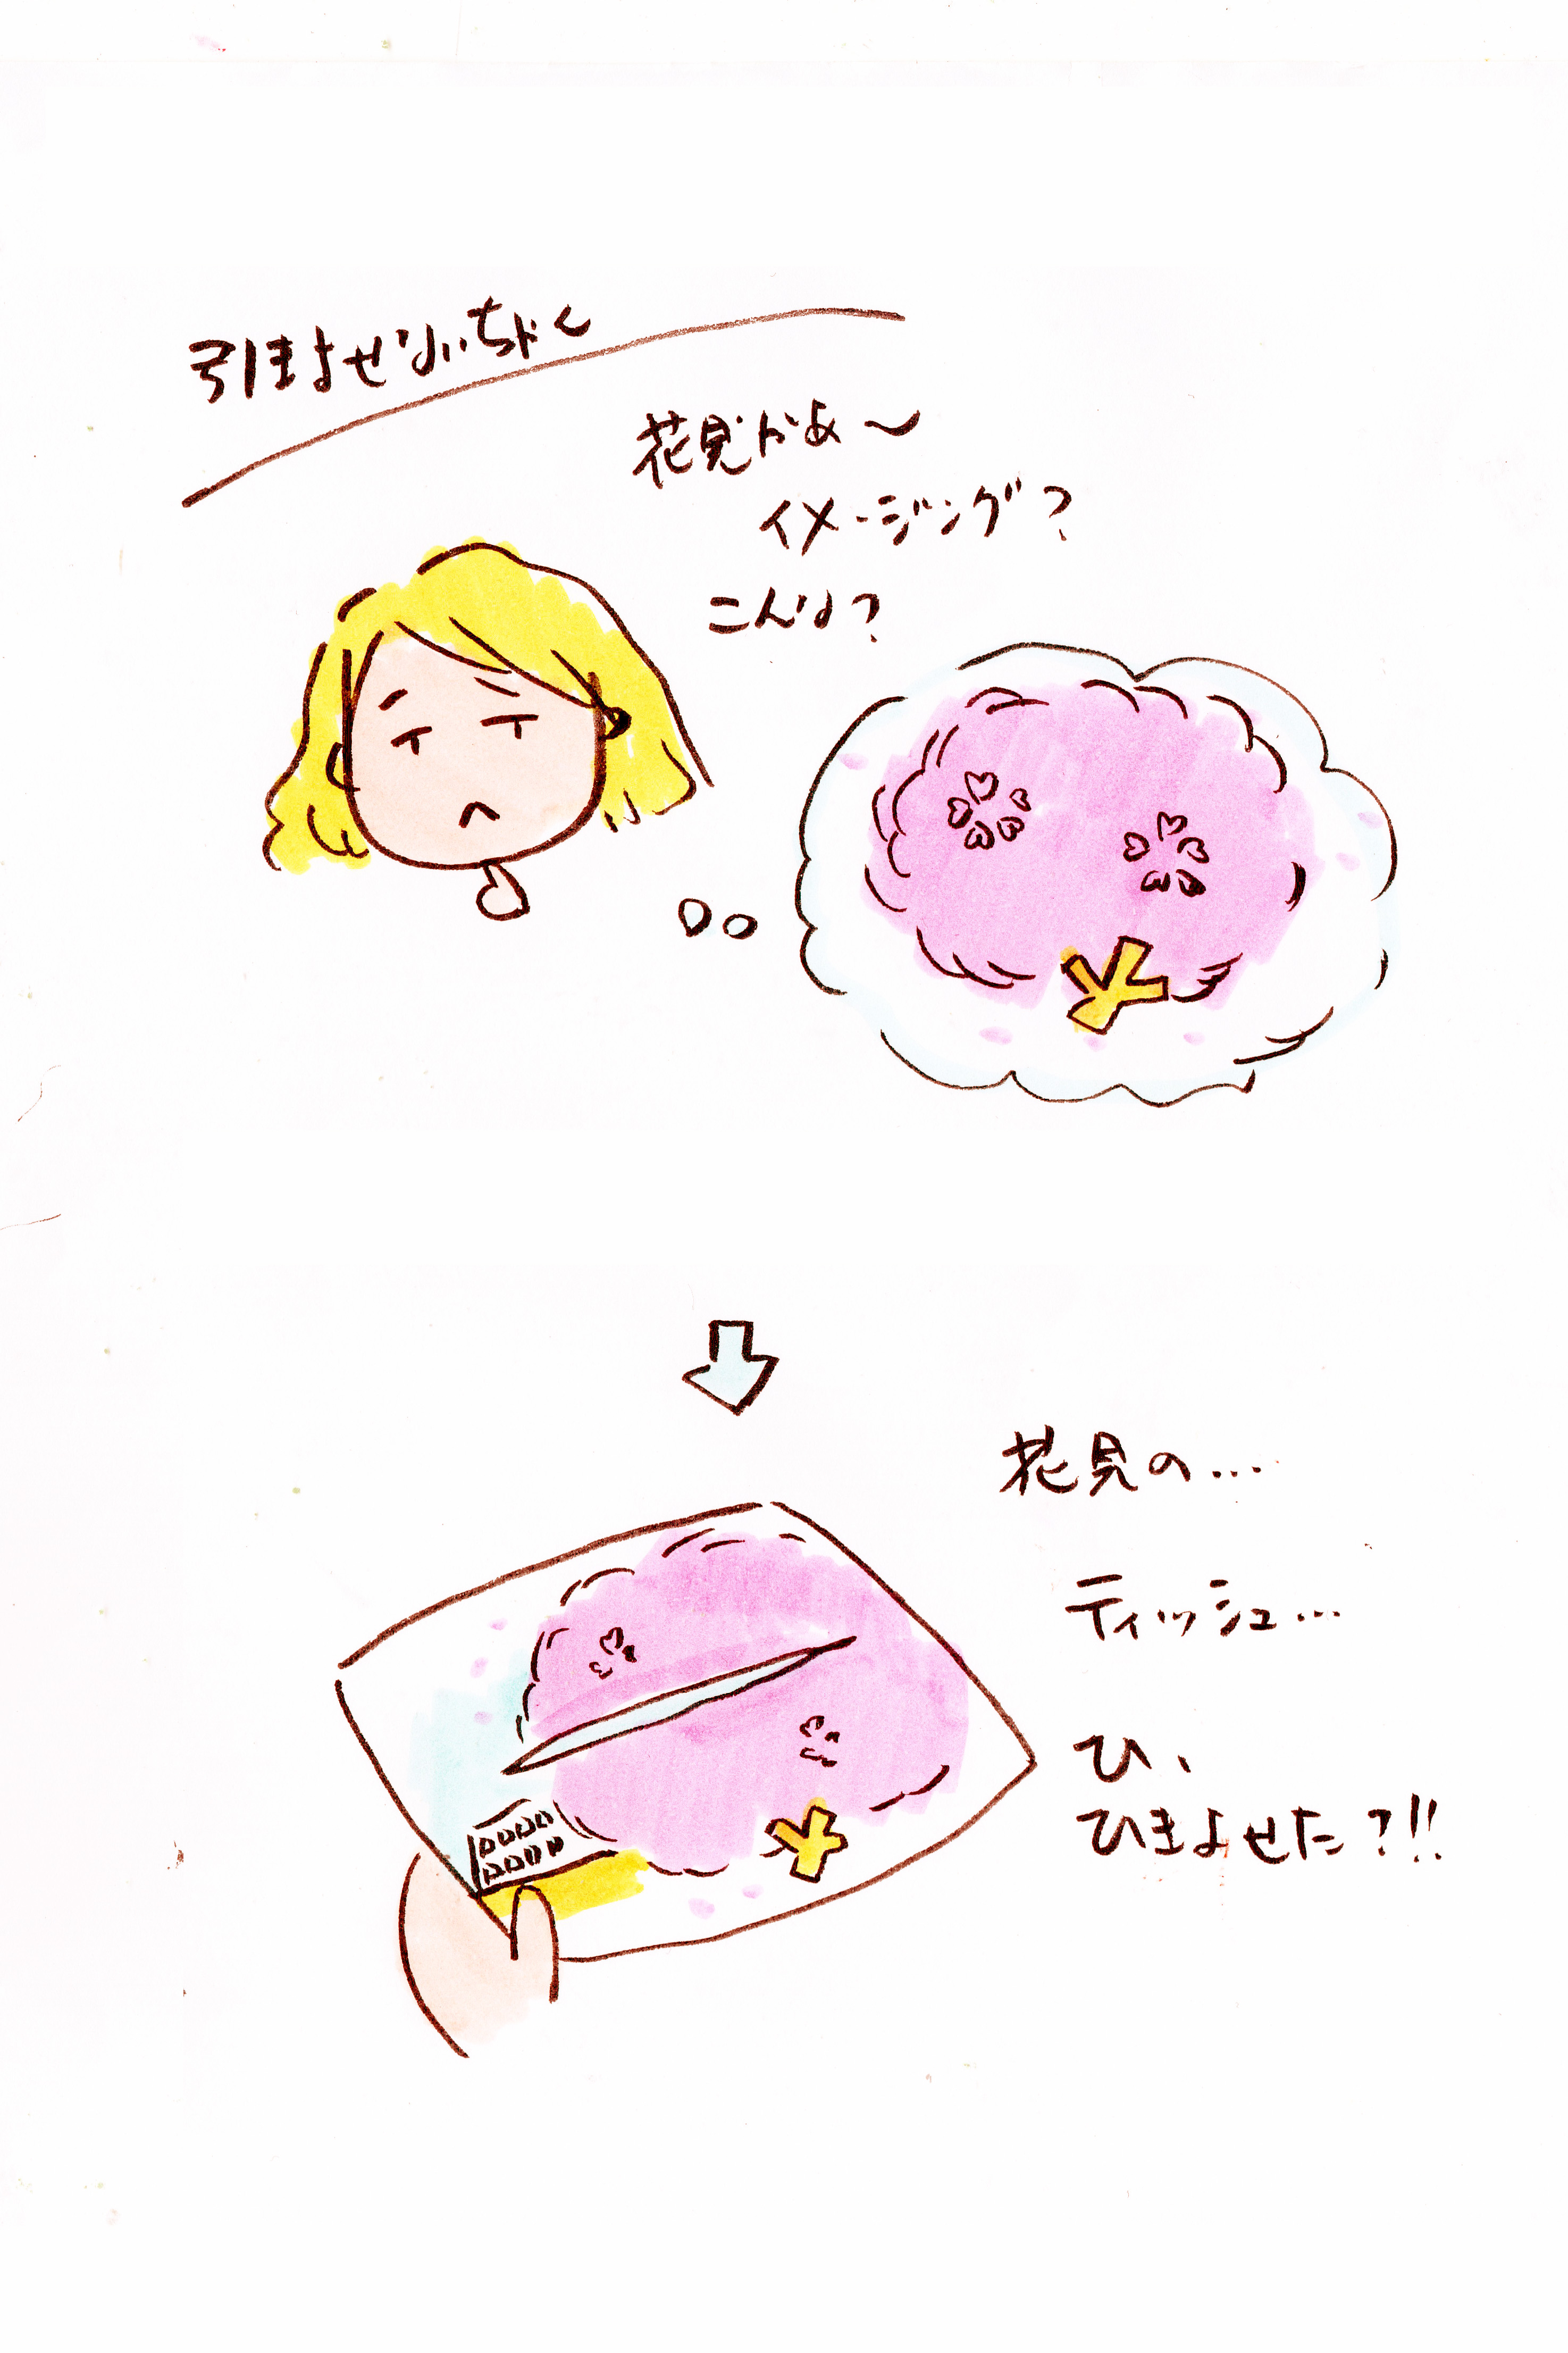 引きよせないちゃん
花見かあ〜
イメージング?
こんな?
花見の....
ティッシュ...
ひ、
ひきよせた?!!